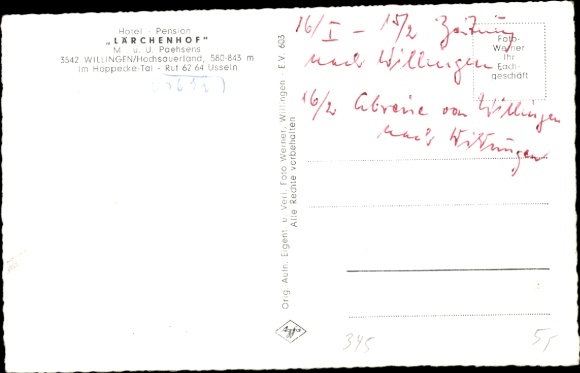 Hotel - Pension
„LÄRCHENHOF"
M. u. U. Paehsens
3542 WILLINGEN/Hochsauerland, 580-843 m
im Hoppecke-Tal - Ruf 62 64 Usseln
16/I – 15/2 Zeitung
nach Willingen
16/2 Abreise von Willingen
nach
Foto-
Werner
Ihr
Fach-
geschäft
Orig. Aufn. Eigent. u. Verl. Foto Werner, Willingen E.V. 603
Alle Rechte vorbehalten
Agfa
345